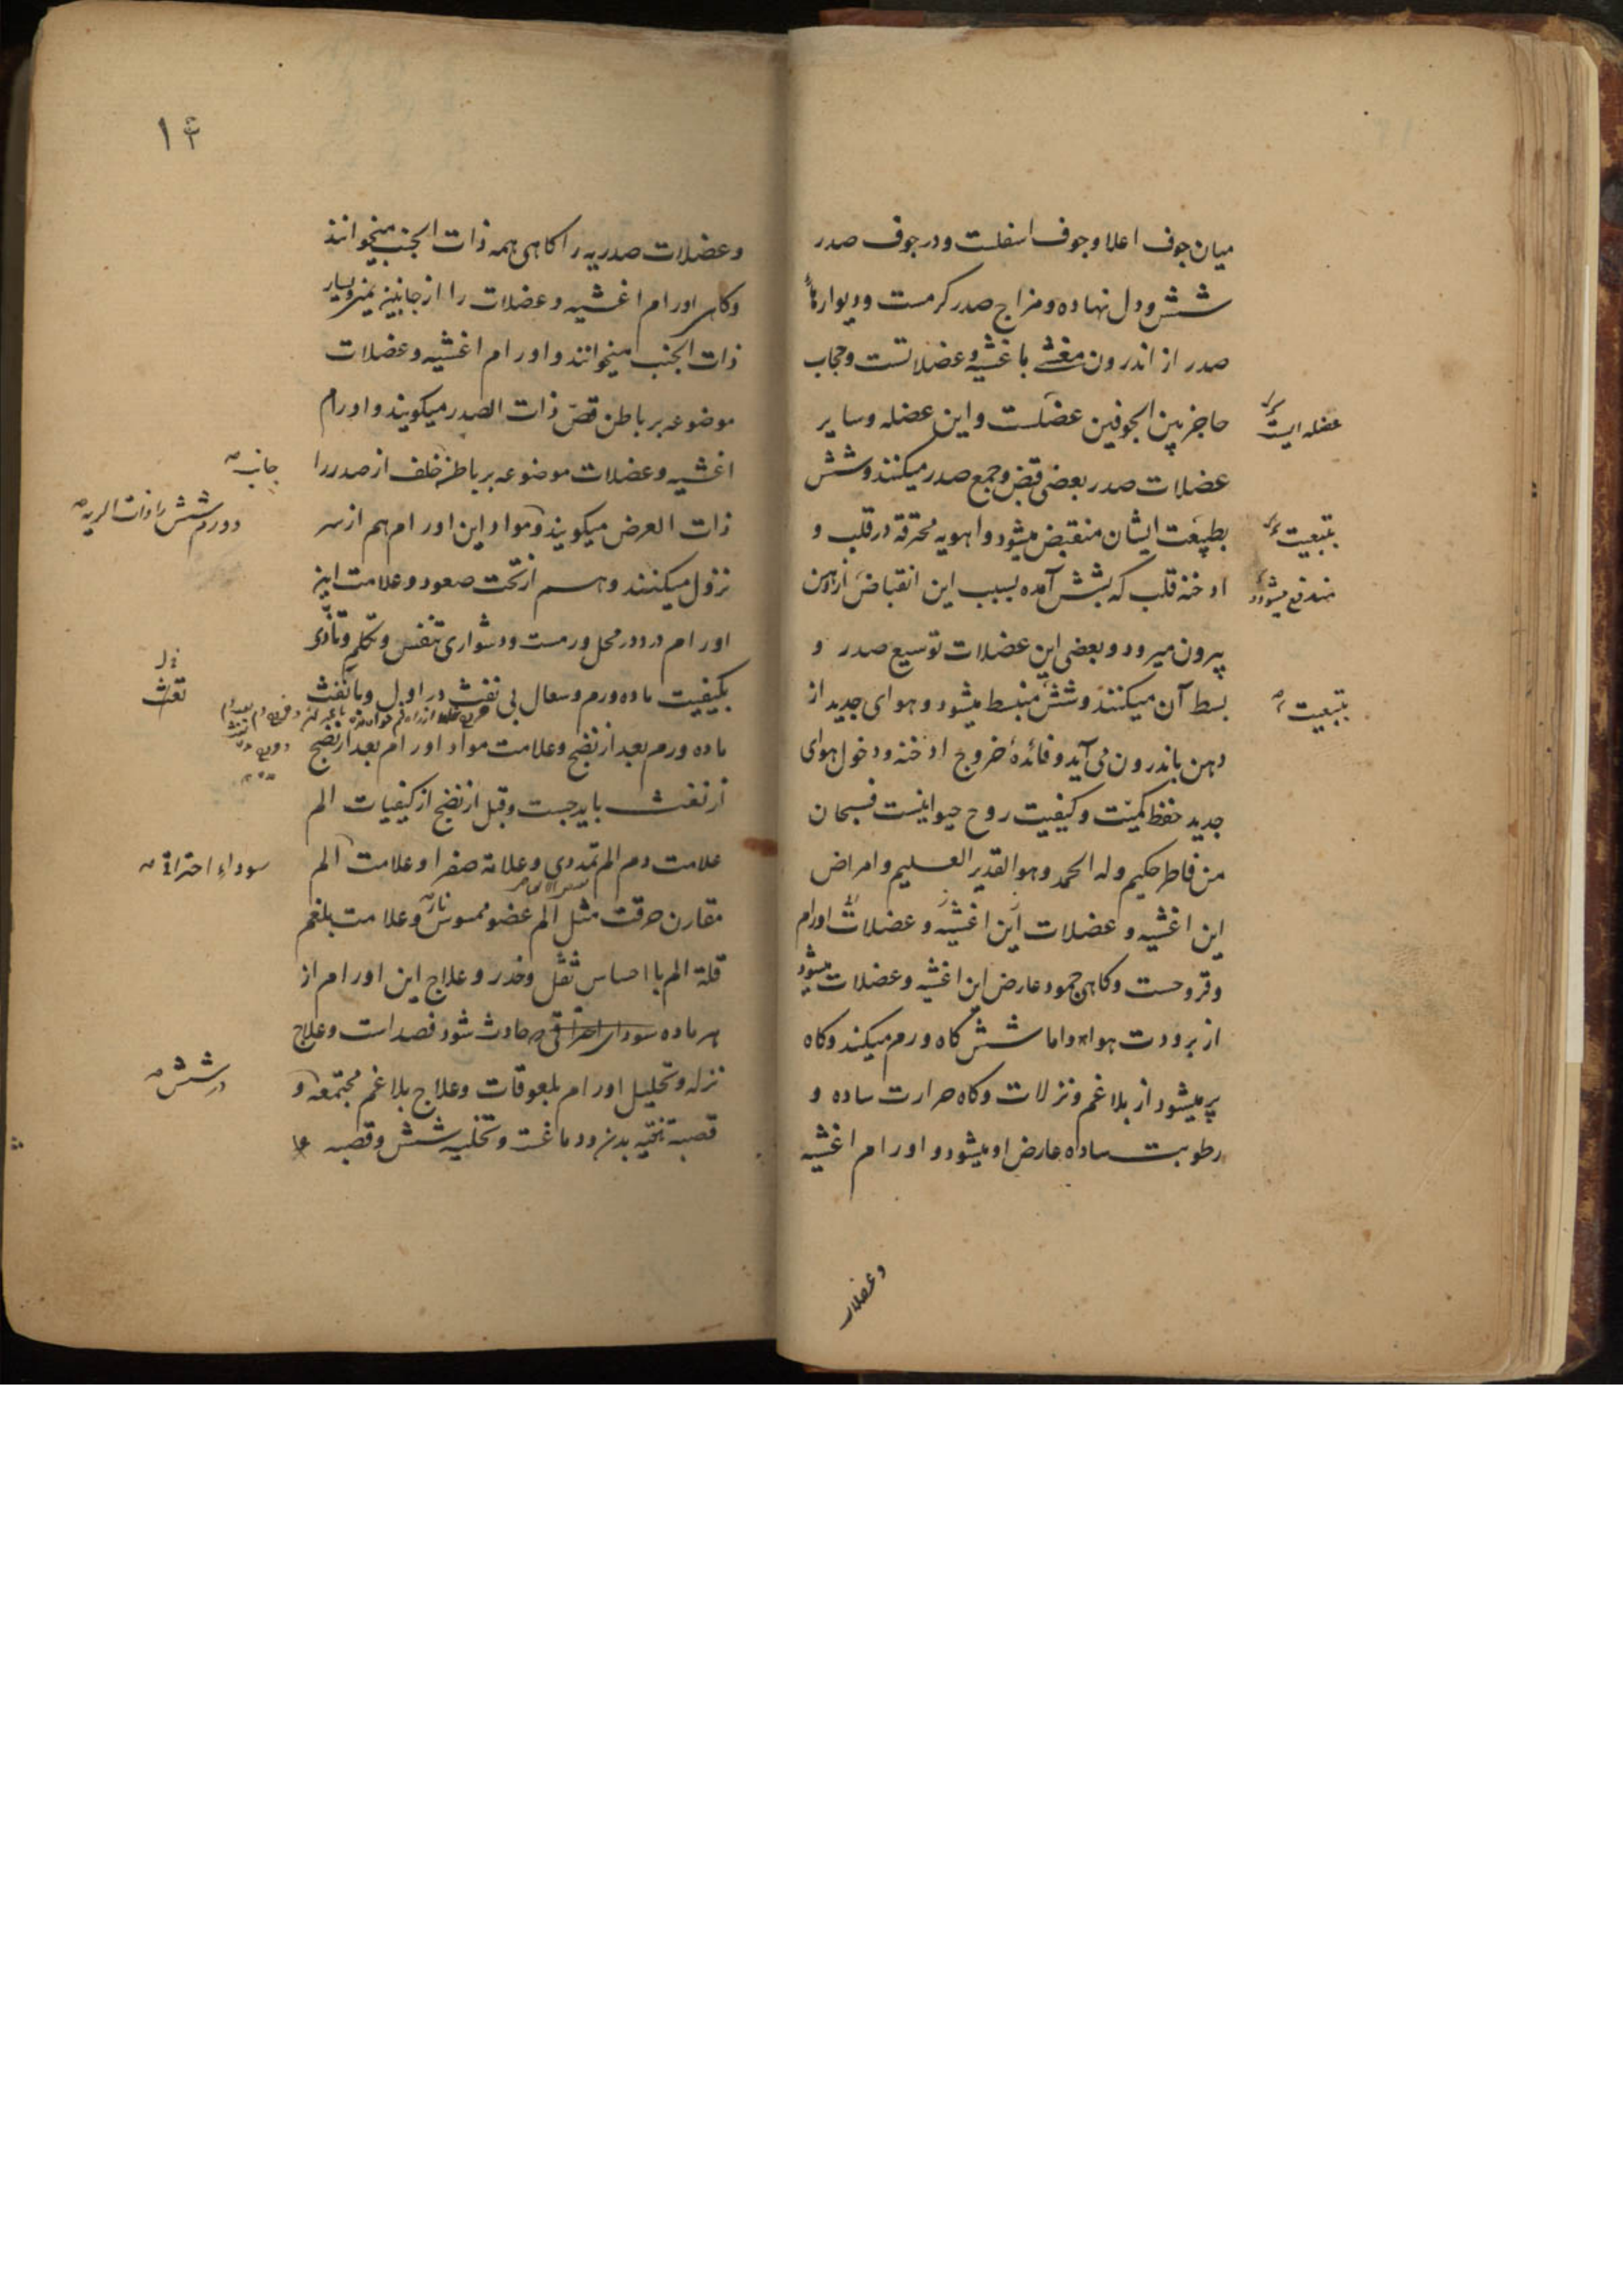 میان جوف اعلا و جوف اسفلست و در جوف صدر
شش و دل نهاده و مزاج صدر کرمست و دیوارهاء
صدر از اندرون مغشے باغشیه و عضلاتست و حجاب
حاجز بین الجوفین عضلست و این عضله و سایر
عضله ایست
عضلات صدر بعضی قبض و جمع صدر میکنند و شش
بطبیعت ایشان منقبض میشود و اهویه محترقه در قلب و
بتبعیت
ادخنه قلب که بشش آمده بسبب این انقباض از دهن
مندفع میشود و
بیرون میرود و بعضی این عضلات توسیع صدر و
بسط آن میکنند و شش منبسط میشود و هوای جدید از
بتبعیت
دهن باندرون می آید و فائدۀ خروج ادخنه و دخول هوای
جدید حفظ کمیّت و کیفیت روح حیوانیست فسبحان
من فاطر حکیم وله الحمد وهو القدیر العلیم و امراض
این اغشیه و عضلات این اغشیه و عضلات اورام
و قروحست و کاهی جمود عارض این اغشیه و عضلات میشود
از برودت هوا و اما شش کاه ورم میکند و کاه
پر میشود از بلاغم و نزلات و کاه حرارت ساده و
رطوبت ساده عارض او میشود و اورام اغشیه
وعضلات
۱۳
وعضلات صدریه را کاهی همه ذات الجنب میخوانند
وکاهی اورام اغشیه و عضلات را از جانبین یمین و یسار
ذات الجنب میخوانند و اورام اغشیه و عضلات
موضوعه بر باطن قصّ ذات الصدر میکویند و اورام
اغشیه و عضلات موضوعه بر باطن خلف از صدر را
جانب
ذات العرض میکویند و مواد این اورام هم از سر
و ورم شش را ذات الریه
نزول میکنند و هم از تحت صعود و علامت این
اورام درد در محل ورمست و دشواری تنفس و تکلم و تأذی
بکیفیت ماده ورم و سعال بی نفث در اول و با نفث
نفث
ماده ورم بعد از نضج و علامت مواد اورام بعد از نضج
از نفث باید جست و قبل از نضج از کیفیات الم
علامت دم الم تمددی و علامة صفرا و علامت الم
سوداء احتراقی
مقارن حرقت مثل الم عضو ممسوس نار و علامت بلغم
قلة الم با احساس ثقل و خدر و علاج این اورام از
هر ماده سودای احتراقی حادث شود فصد است و علاج
نزله و تحلیل اورام بلعوقات و علاج بلاغم مجتمعه و
در شش
قصبه تنقیه بدن و دماغست و تخلیه شش و قصبه